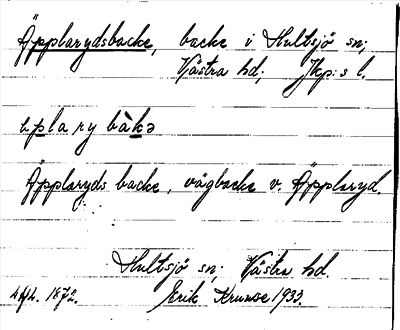 Äpplarydsbacke, backe i Hultsjö sn;
Västra hd; Jkp:s l.
äplary bàkə
Äpplaryds backe, vägbacke v. Äpplaryd.
Hultsjö sn; Västra hd.
1872. Erik Krusse 1933.